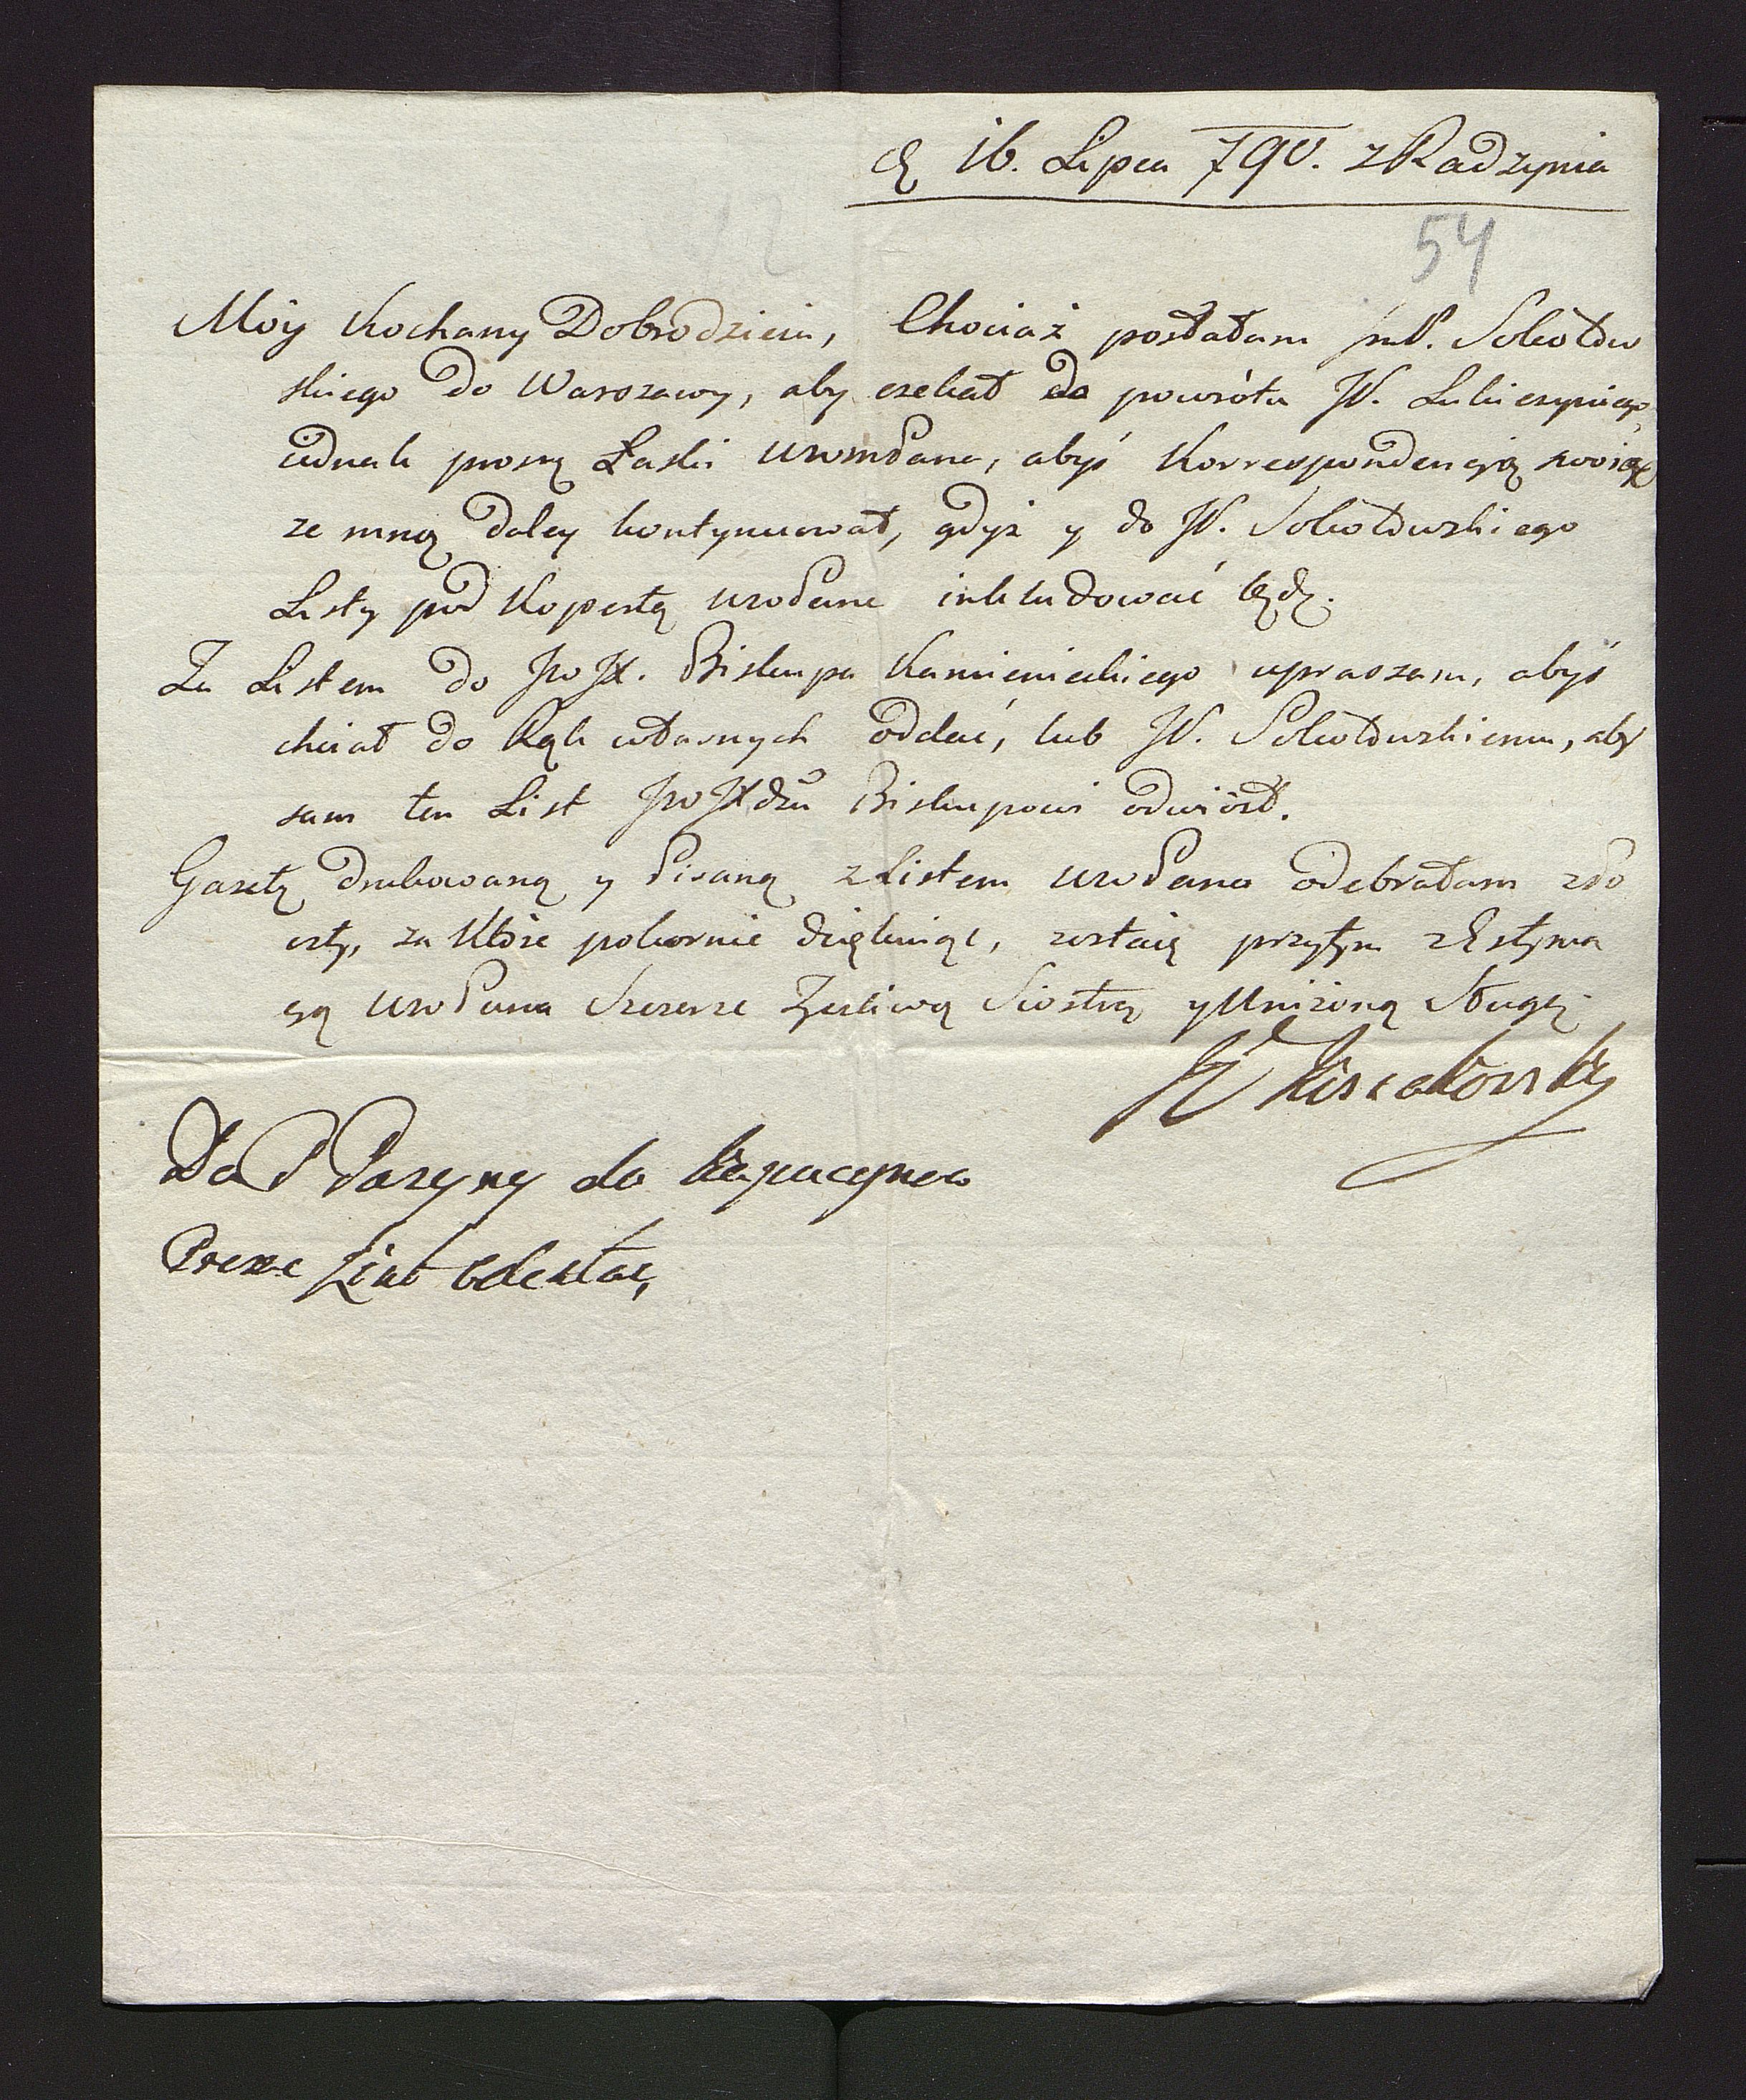 d 16. Lipca 790. z Radzynia
54
Móy Kochany Dobrodzieiu, Chociaż posłałam JmP. Sokołow
skiego do Warszawy, aby czekał do powrótu JP.
iednak proszę Łaski WwmPana, abyś Korrespondencyią swoią
ze mną daley kontynuował, gdyż y do JP. Sokołowskiego
Listy pod Kopertą WwPana inkludować będę.
Za Listem do JwJX. Biskupa Kamienieckiego upraszam, abyś
chciał do Rąk własnych oddać, lub JP. Sokołowskiemu, aby
sam ten List JwJXdzu Biskupowi odwiósł.
Gazetę drukowaną y Pisaną z Listem WwPana odebrałam z Po
czty, za które pokornie dziękuiąc, zostaię przytym z Estyma
cyą WwPana Szczerze Życzliwą Siostrą y Uniżoną Sługą
Do P Paszyny do Kapucynow
Prosze List Odesłac,